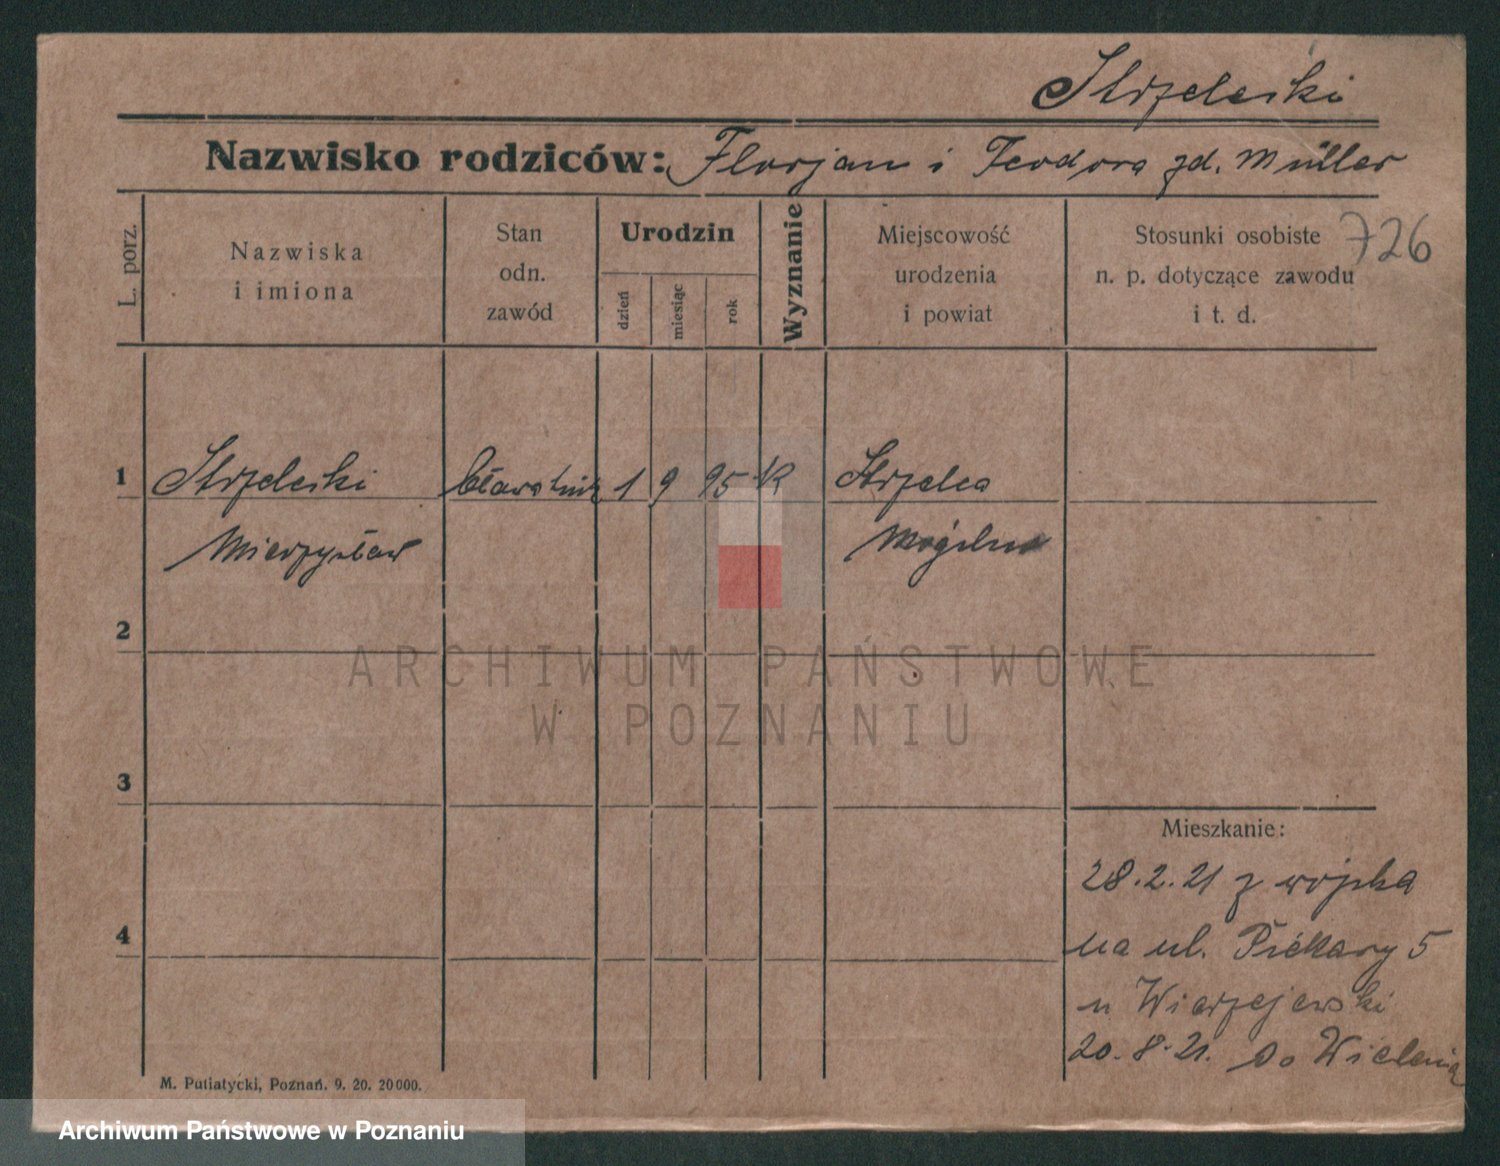 Strzelecki
Nazwisko rodziców: Florjan i Teodora zd. Müller
L. porz.
Nazwiska
i imiona
Stan
odn.
zawód
Urodzin
dzień
miesiąc
rok
Wyznanie
Miejscowość
urodzenia
i powiat
Stosunki osobiste
n. p. dotyczące zawodu
i t. d.
726
1 Strzelecki bławatnik 1 9 95 K Strzelce
Mieczysław Mogilno
2
3
4
Mieszkanie:
28.2.21 z wojska
na ul. Piekary 5
u Wierzejewski
20.8.21. do Wielenia
M. Putiatycki, Poznań. 9. 20. 20000.
ARCHIWUM PAŃSTWOWE
W POZNANIU
Archiwum Państwowe w Poznaniu